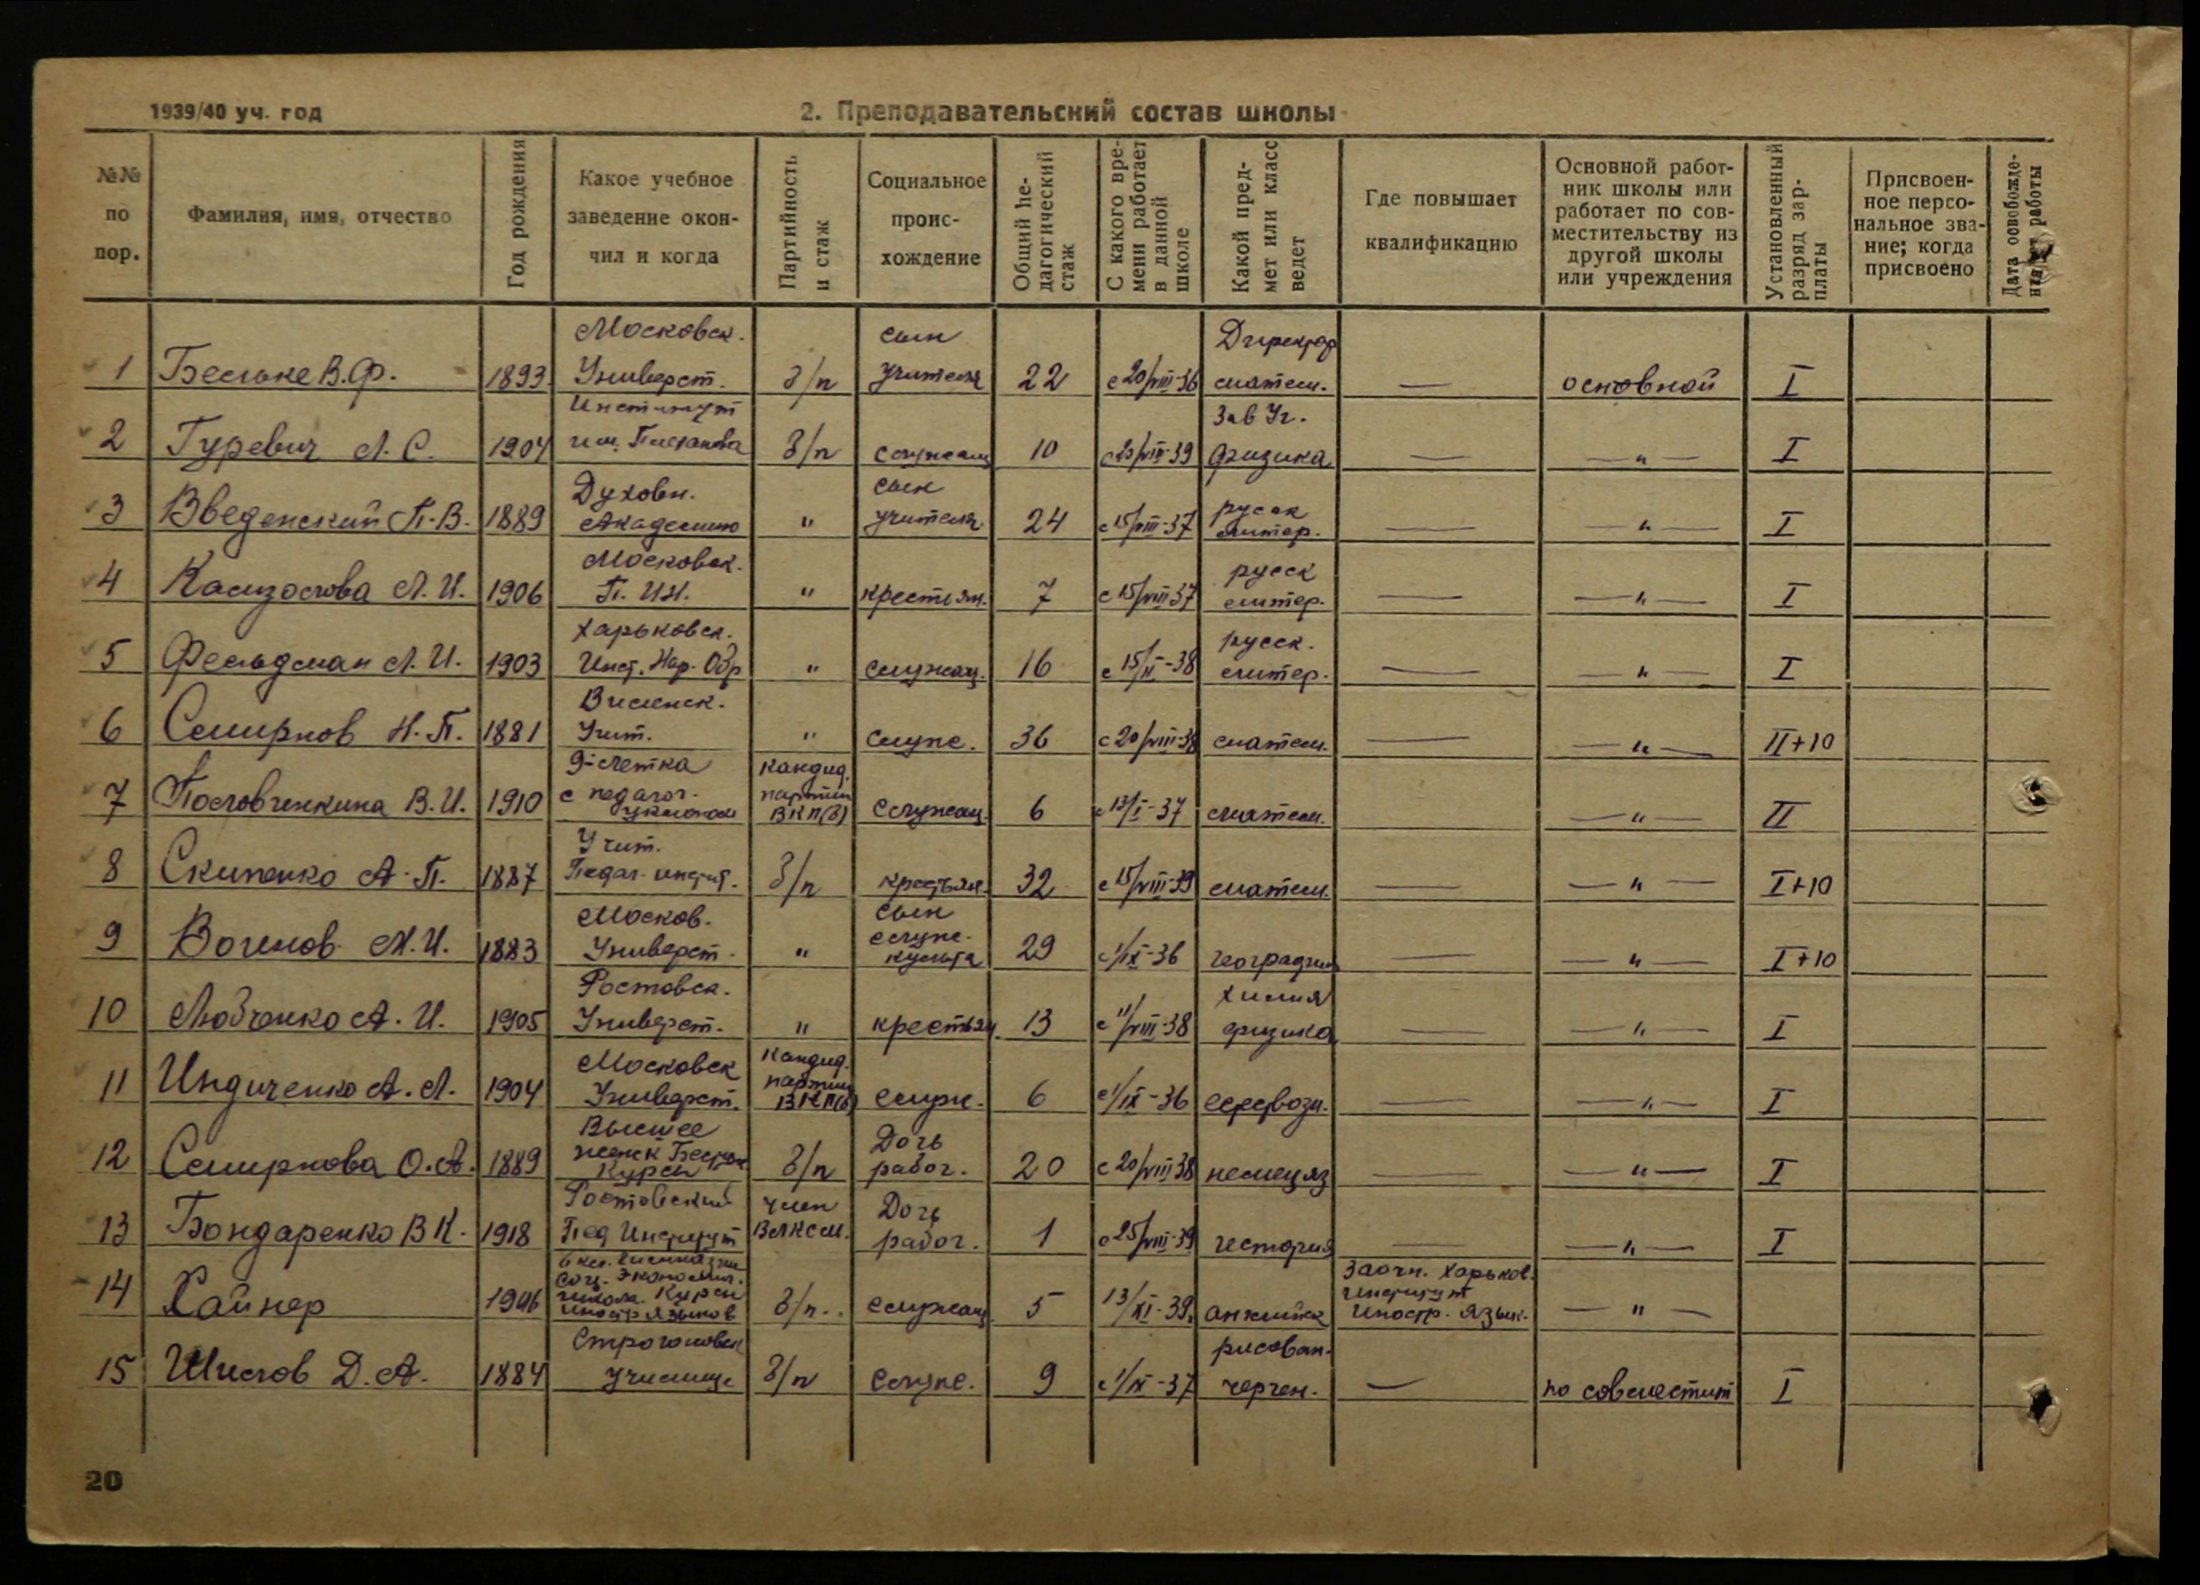 1939/40 уч. год
2. Преподавательский состав школы
№№ по пор.
Фамилия, имя, отчество
Год рождения
Какое учебное заведение окончил и когда
Партийность и стаж
Социальное происхождение
Общий педагогический стаж
С какого времени работает в данной школе
Какой предмет или класс ведет
Где повышает квалификацию
Основной работник школы или работает по совместительству из другой школы или учреждения
Установленный разряд зарплаты
Присвоенное персональное звание; когда присвоено
Дата освобождения от работы
1 В.Ф. 1893 Московск. Универст. б/п сын учителя 22 с 20/VIII-36 Директор матем. — основной I
2 Гуревич Л. С. 1904 Институт им. Плеханова б/п служащ 10 VIII-39 Зав Уч. физика — — " — I
3 Введенский П.В. 1889 Духовн. Академию " сын учителя 24 с 15/VIII-37 русск литер. — — " — I
4 Камзолова Л. И. 1906 Московск. П. Ин. " крестьян. 7 с 15/VIII 37 русск литер. — — " — I
5 Фельдман Л. И. 1903 Харьковск. Инст. Нар. Обр " служащ. 16 с 15/II-38 русск. литер. — — " — I
6 Смирнов Н. П. 1881 Виленск. Учит. " служ. 36 с 20/VIII-38 матем. — — " — II+10
7 Половченкина В. И. 1910 9-летка с педагог. уклоном кандид. партии ВКП(б) служащ. 6 с 13/I-37 матем. — " — II
8 Скипенко А. П. 1887 Учит. Педаг. инстит. б/п крестьян. 32 с 15/VIII-39 матем. — — " — I+10
9 И. 1883 Москов. Универст. " сын служ. культа 29 с 1/IX-36 география — — " — I+10
10 Любченко А. И. 1905 Ростовск. Универст. " крестьян. 13 с 11/VIII-38 химия физика — — " — I
11 Индиченко А. Л. 1904 Московск Универст. кандид. партии ВКП(б) служ. 6 с 1/IX-36 — — " — I
12 Смирнова О. А. 1889 Высшее женск Курсы б/п Дочь рабоч. 20 с 20/VIII 38 немец яз — — " — I
13 Бондаренко В К. 1918 Ростовский Пед Институт член ВЛКСМ. Дочь рабоч. 1 с 25/VIII-39 история — — " — I
14 Хайнер 1906 Соц. экономич. школа. Курсы иностр языков б/п. служащ 5 13/XI-39. английск Заочн. Харьков. Институт Иностр. язык. — " —
15 Шилов Д. А. 1884 Строгоновск училище б/п служ. 9 с 1/IX-37 рисован. черчен. — по совместит I
20